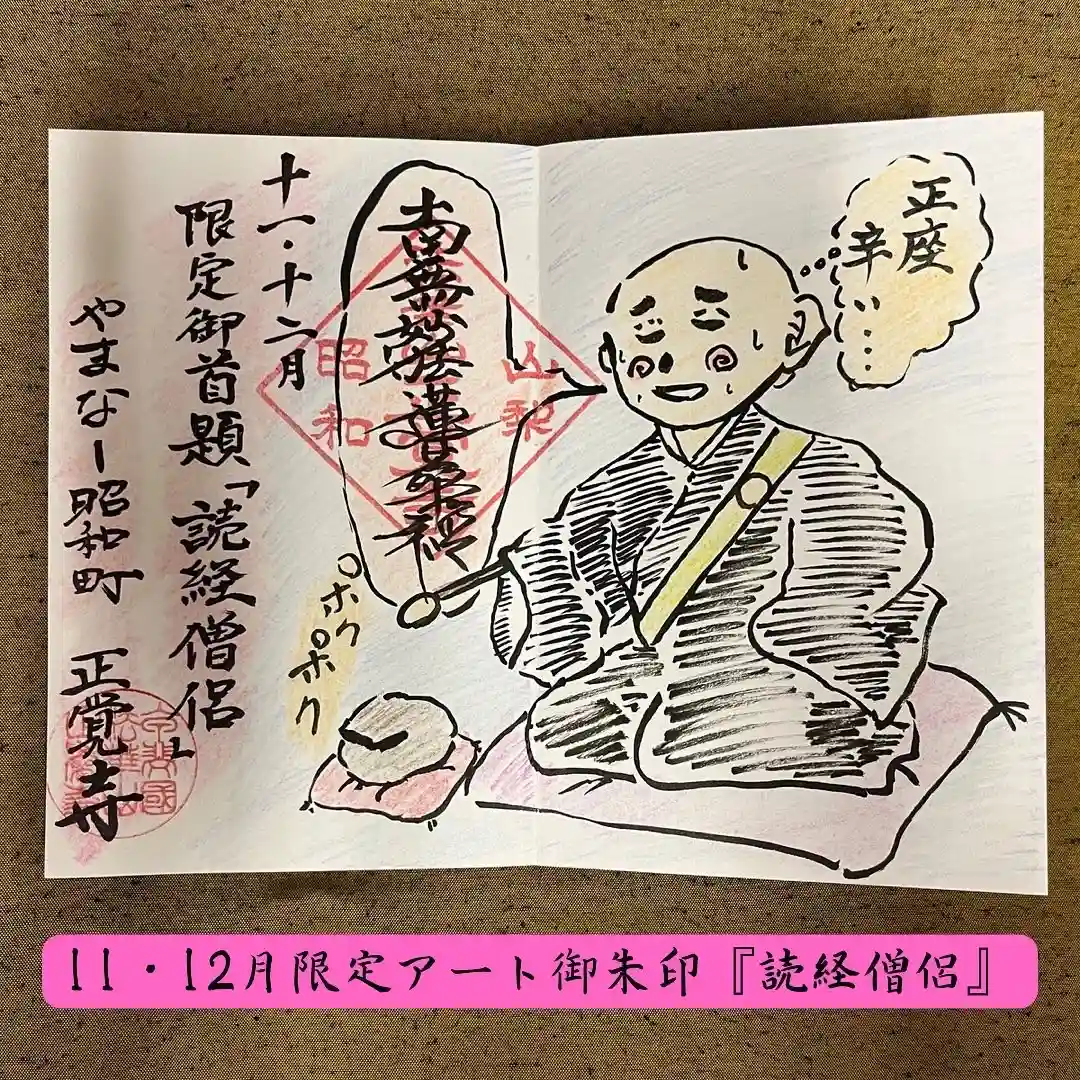 正座
辛い…
南無妙法蓮華経
山梨
昭和
十一・十二月
限定御首題「読経僧侶」
ポクポク
やまなし昭和町 正覚寺
11・12月限定アート御朱印『読経僧侶』